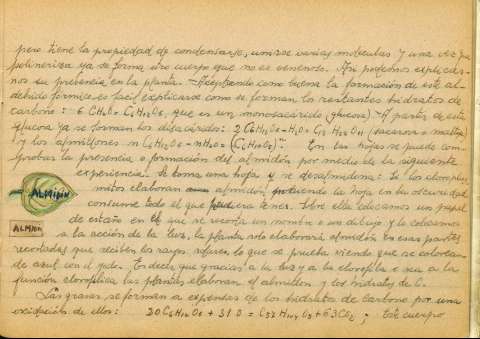 pero tiene la propiedad de condensarse, unirse varias moleculas y una vez que
polimeriza ya se forma otro cuerpo que no es venenoso. Asi podemos explicar-
nos su presencia en la planta. Aceptando como buena la formación de este al-
dehido fórmico, es facil explicarse como se forman los restantes hidratos de
carbono: 6 CH₂O = C₆H₁₂O₆, que es un monosacárido (glucosa). A partir de esta
glucosa ya se forman los disacáridos: 2 C₆H₁₂O₆ - H₂O = C₁₂H₂₂O₁₁ (sacarosa o maltosa)
y los almidones n C₆H₁₂O₆ - nH₂O = (C₆H₁₀O₅)ⁿ. En las hojas se puede com-
probar la presencia o formación del almidón por medio de la siguiente
experiencia. Se toma una hoja y se desalmidona: Si los cloroplas-
mitos elaboran almidón, poniendo la hoja en la oscuridad
consume todo el que pudiera tener. Sobre ella colocamos un papel
ALMIDÓN
de estaño en el que se recorta un nombre o un dibujo y lo colocamos
ALMIDÓN
a la acción de la luz, la planta solo elaborará almidón en esas partes
recortadas que reciben los rayos solares, lo que se prueba viendo que se colorean
de azul con el yodo. Es decir que gracias a la luz y a la clorofila o sea a la
función clorofílica las plantas elaboran el almidón y los hidratos de C.
Las grasas se forman a expensas de los hidratos de carbono por una
oxidación de ellos: 20 C₆H₁₂O₆ + 31 O = C₅₇H₁₀₄O₆ + 63 CO₂; este cuerpo